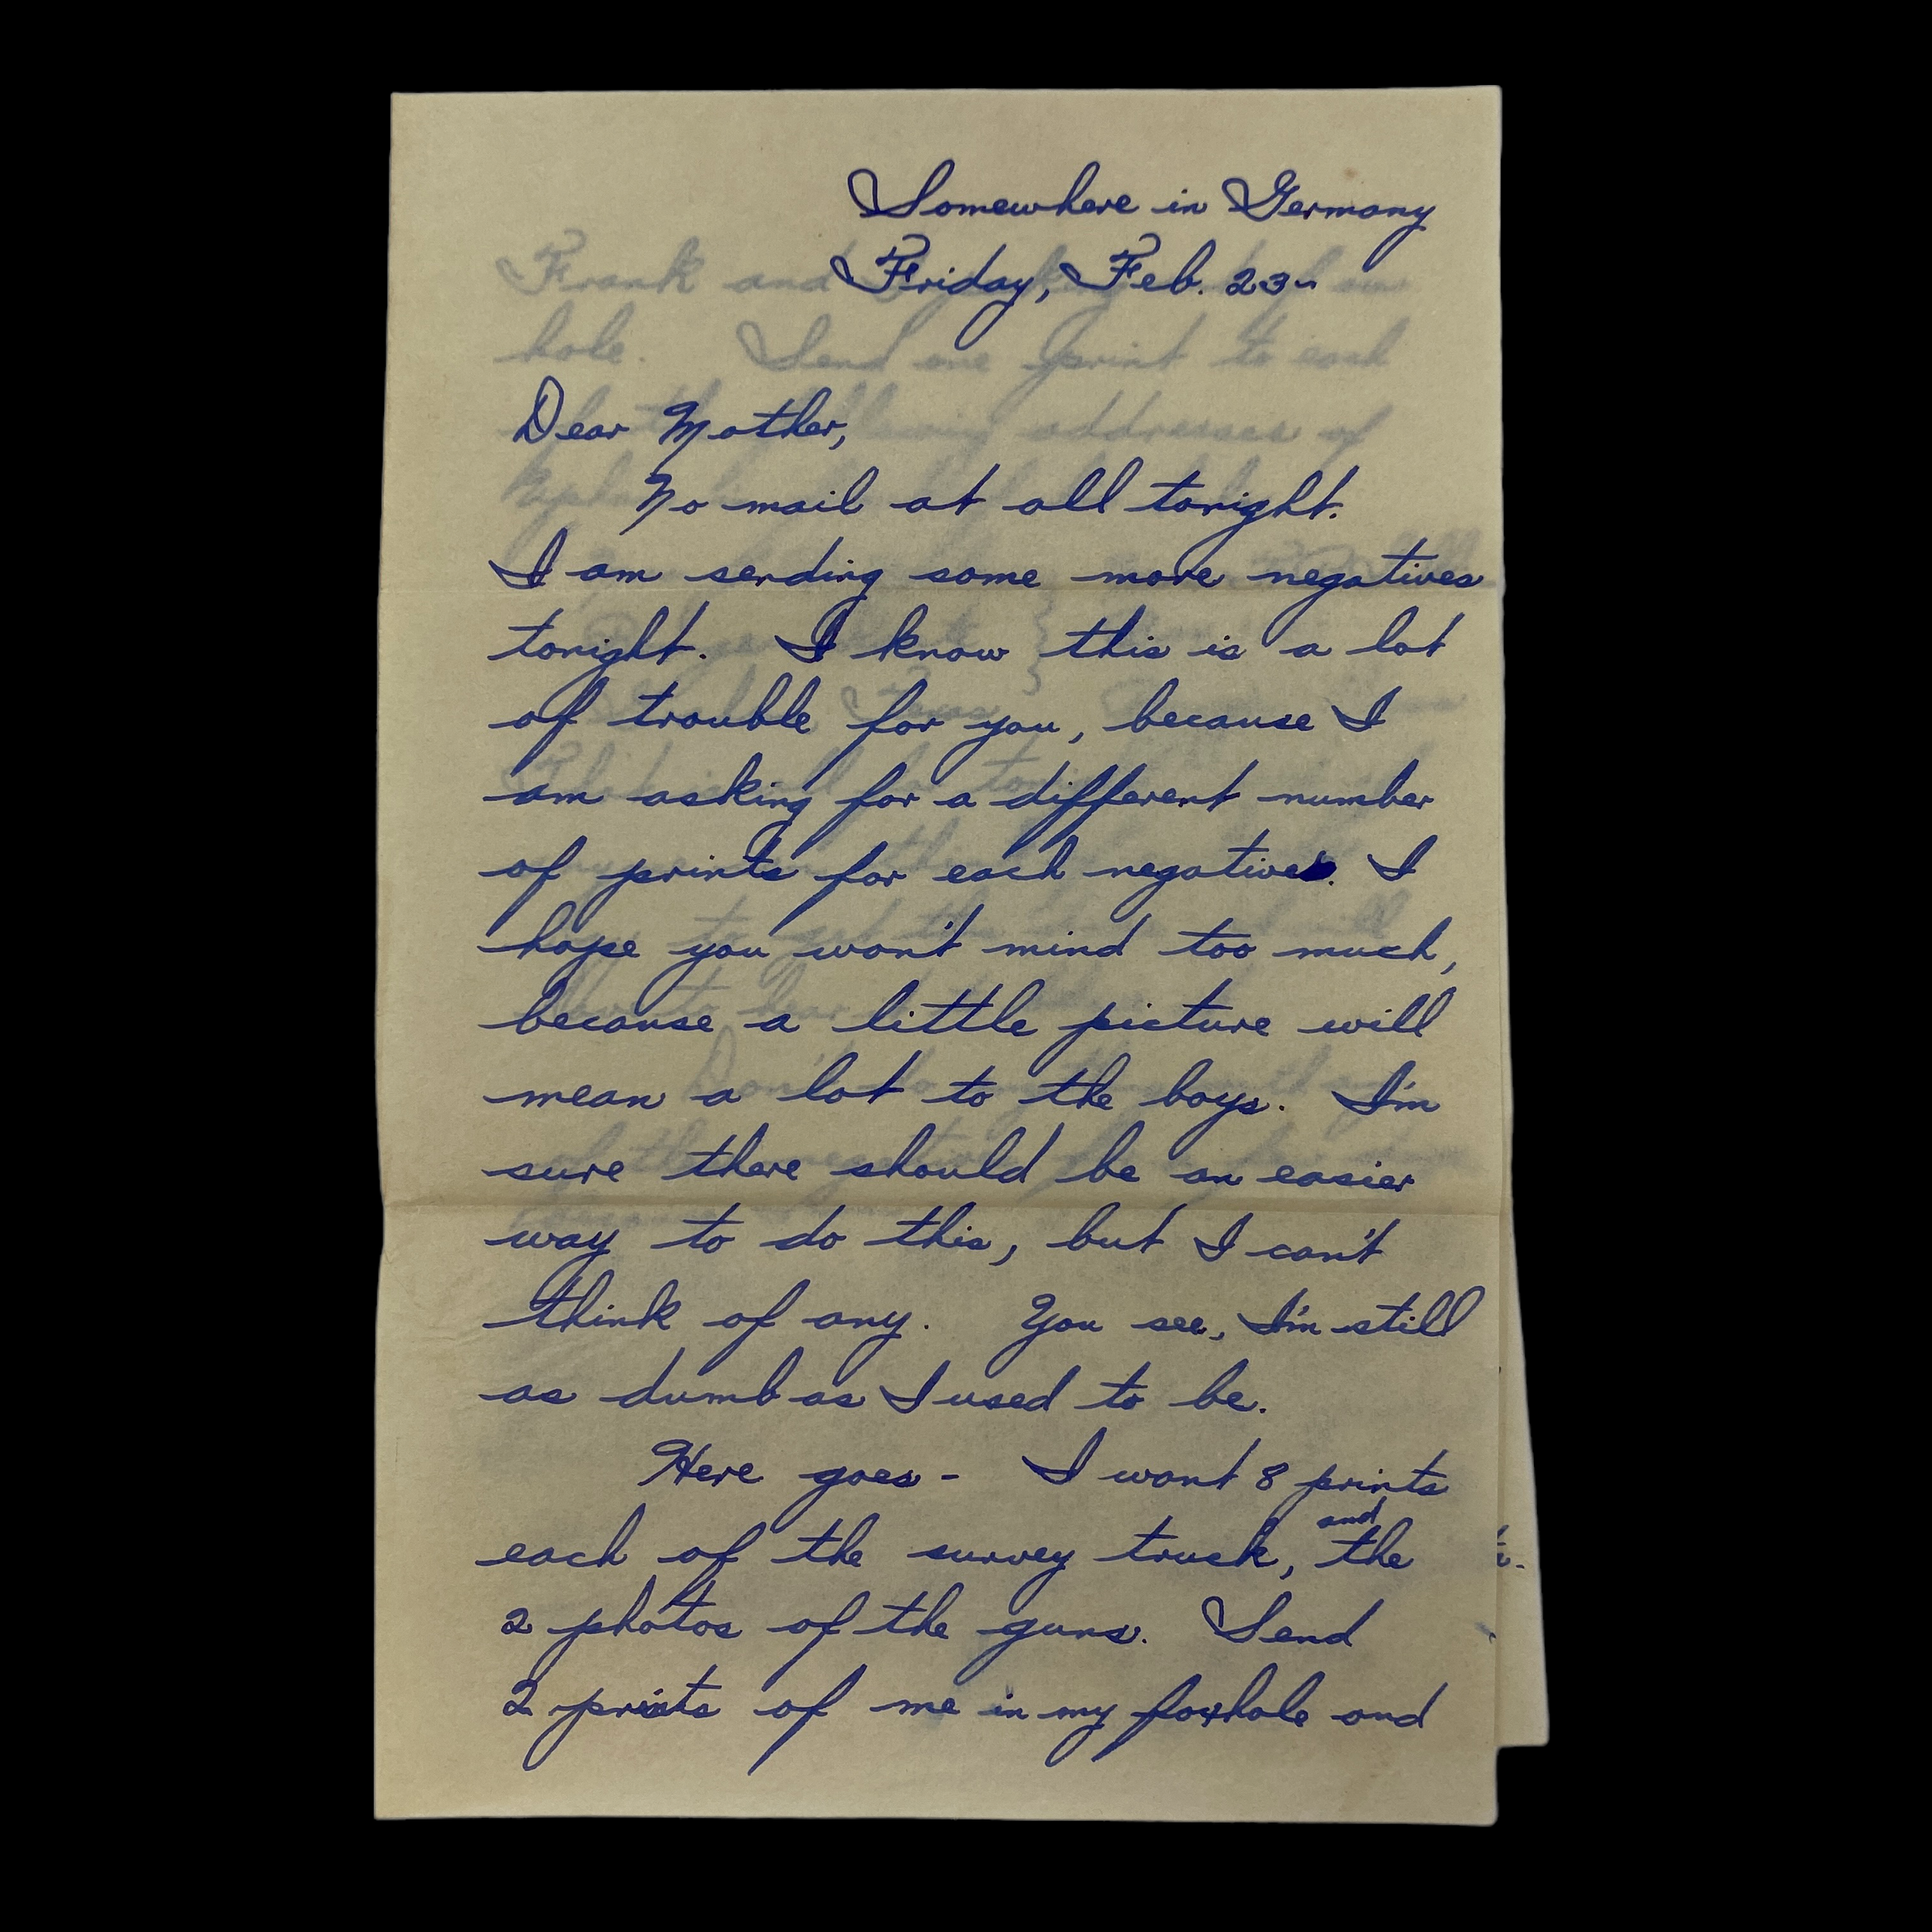 Somewhere in Germany
Friday, Feb. 23~
Dear Mother,
No mail at all tonight.
I am sending some more negatives
tonight. I know this is a lot
of trouble for you, because I
am asking for a different number
of prints for each negative. I
hope you won't mind too much,
because a little picture will
mean a lot to the boys. I'm
sure there should be an easier
way to do this, but I can't
think of any. You see, I'm still
as dumb as I used to be.
Here goes - I want 8 prints
and
each of the survey truck, the
2 photos of the guns. Send
2 prints of me in my foxhole and